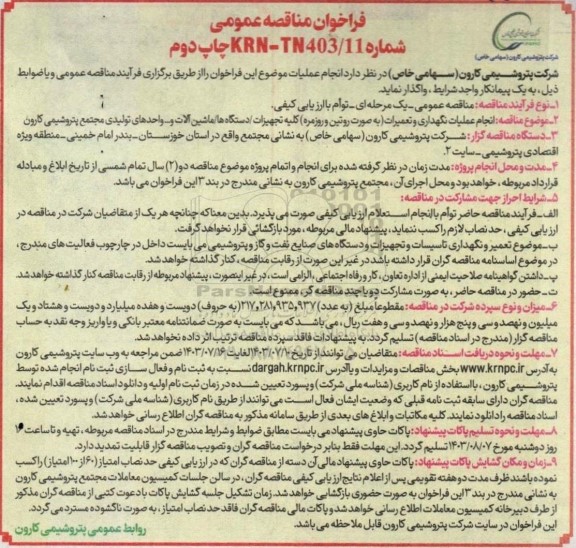 فراخوان مناقصه عمومی
شماره KRN-TN403/11 چاپ دوم
شرکت پتروشیمی کارون (سهامی خاص)
شرکت پتروشیمی کارون (سهامی خاص) در نظر دارد انجام عملیات موضوع این فراخوان را از طریق برگزاری فرآیند مناقصه عمومی و با ضوابط
ذیل، به یک پیمانکار واجد شرایط، واگذار نماید.
۱-نوع فرآیند مناقصه: مناقصه عمومی -یک مرحله ای -توأم با ارزیابی کیفی.
۲-موضوع مناقصه: انجام عملیات نگهداری و تعمیرات (به صورت روتین و روزمره) کلیه تجهیزات/دستگاه ها/ماشین آلات و...واحدهای تولیدی مجتمع پتروشیمی کارون
۳-دستگاه مناقصه گزار: شرکت پتروشیمی کارون (سهامی خاص) به نشانی مجتمع واقع در استان خوزستان -بندر امام خمینی -منطقه ویژه
اقتصادی پتروشیمی -سایت ۲.
۴-مدت و محل انجام پروژه: مدت زمان در نظر گرفته شده برای انجام و اتمام پروژه موضوع مناقصه دو (۲) سال تمام شمسی از تاریخ ابلاغ و مبادله
قرارداد مربوطه، خواهد بود و محل اجرای آن، مجتمع پتروشیمی کارون به نشانی مندرج در بند ۳ این فراخوان می باشد.
۵-شرایط احراز جهت مشارکت در مناقصه:
الف-فرآیند مناقصه حاضر توأم با انجام استعلام ارزیابی کیفی صورت می پذیرد. بدین معنا که چنانچه هر یک از متقاضیان شرکت در مناقصه در
ارزیابی کیفی، حد نصاب لازم را کسب ننماید، پیشنهاد مالی مربوطه، مورد بازگشائی قرار نخواهد گرفت.
ب-موضوع تعمیر و نگهداری تاسیسات و تجهیزات و دستگاه های صنایع نفت و گاز و پتروشیمی می بایست داخل در چارچوب فعالیت های مندرج،
در موضوع اساسنامه مناقصه گران قرار داشته باشد در غیر این صورت از رقابت مناقصه، کنار گذاشته خواهد شد.
پ-داشتن گواهینامه صلاحیت ایمنی از اداره تعاون، کار و رفاه اجتماعی، الزامی است، در غیر اینصورت، پیشنهاد مربوطه از رقابت مناقصه کنار گذاشته خواهد شد.
ت-حضور در مناقصه حاضر، به صورت مشارکت دو یا چند مناقصه گر، ممنوع است.
۶-میزان و نوع سپرده شرکت در مناقصه: مقطوعاً مبلغ (به عدد) ۲۱۷,۲۸۱,۹۳۵,۹۳۷ (به حروف) دویست و هفده میلیارد و دویست و هشتاد و یک
میلیون و نهصد و سی و پنج هزار و نهصد و سی و هفت ریال، می باشد که می بایست به صورت ضمانتنامه معتبر بانکی و یا واریز وجه نقد به حساب
مناقصه گزار (مندرج در اسناد مناقصه) تسلیم گردد. به پیشنهادات فاقد سپرده مناقصه ترتیب اثر داده نخواهد شد.
۷-مهلت و نحوه دریافت اسناد مناقصه: متقاضیان می توانند از تاریخ ۱۴۰۳/۰۷/۱۰ لغایت ۱۴۰۳/۰۷/۱۶ ضمن مراجعه به وب سایت پتروشیمی کارون
به آدرس www.krnpc.ir بخش مناقصات و مزایدات و یا آدرس dargah.krnpc.ir نسبت به ثبت نام و فعال سازی ثبت نام انجام شده توسط
پتروشیمی کارون، با استفاده از نام کاربری (شناسه ملی شرکت) و پسورد تعیین شده در زمان ثبت نام اولیه و دانلود اسناد مناقصه اقدام نمایند.
مناقصه گران دارای سابقه ثبت نامه قبلی که وضعیت ایشان فعال است می توانند از طریق نام کاربری (شناسه ملی شرکت) و پسورد تعیین شده،
اسناد مناقصه را دانلود نمایند. کلیه مکاتبات و ابلاغ های بعدی از طریق سامانه مذکور به مناقصه گران اطلاع رسانی خواهد شد.
۸-مهلت و نحوه تسلیم پاکات پیشنهاد: پاکات حاوی پیشنهاد می بایست مطابق ضوابط و شرایط مندرج در اسناد مناقصه مربوطه، تهیه و تا ساعت ۱۶
روز دوشنبه مورخ ۱۴۰۳/۰۸/۰۷ تسلیم گردد. این مهلت فقط بنابر درخواست مناقصه گران و تصویب مناقصه گزار قابلیت تمدید دارد.
۹-زمان و مکان گشایش پاکات پیشنهاد: پاکات حاوی پیشنهاد مالی آن دسته از مناقصه گران که در ارزیابی کیفی حد نصاب امتیاز (۶۰ از ۱۰۰ امتیاز) را کسب
نموده باشند ظرف مدت دو هفته تقویمی پس از اعلام نتایج ارزیابی کیفی مناقصه گران، در سالن جلسات کمیسیون معاملات مجتمع پتروشیمی کارون
به نشانی مندرج در بند ۳ این فراخوان به صورت حضوری بازگشایی خواهد شد. زمان تشکیل جلسه گشایش پاکات با دعوت کتبی از مناقصه گران مذکور
از طرف دبیرخانه کمیسیون معاملات اطلاع رسانی خواهد شد و پاکات مالی مناقصه گران فاقد حد نصاب امتیاز، به صورت ناگشوده مسترد می گردد.
این فراخوان در سایت شرکت پتروشیمی کارون قابل ملاحظه می باشد.
روابط عمومی پتروشیمی کارون